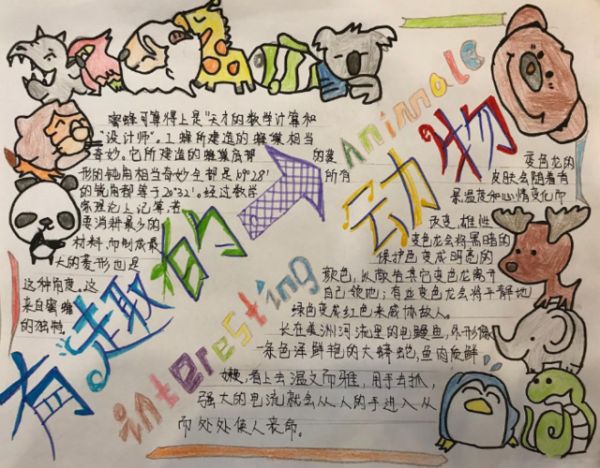 有趣的动物
Animale
interesting
蜜蜂可算得上是"天才的数学计算和
"设计师"。工蜂所建造的蜂巢相当
奇妙。它所建造的蜂巢底部 的菱
形的钝角相当奇妙全都是109°28' 所有
的锐角都等于70°32'。经过数学
家理论上记算,若
要消耗最少的
材料,而制成最
大的菱形也是
这种角度。这
来自蜜蜂
的独特。
变色龙的
皮肤会随着有
温度和心情变化而
改变,雄性
变色龙会将黑暗的
保护色变成明亮的
颜色,从敬告其它变色龙离开
自己领地;有些变色龙会将平静地
绿色变成红色来威体敌人。
长在美洲河流里的电鳗鱼,外形像
一条色泽鲜艳的大蟒蛇,鱼肉质鲜
嫩,看上去温文而雅,用手去抓,
强大的电流就会从人的手进入从
而处处使人丧命。